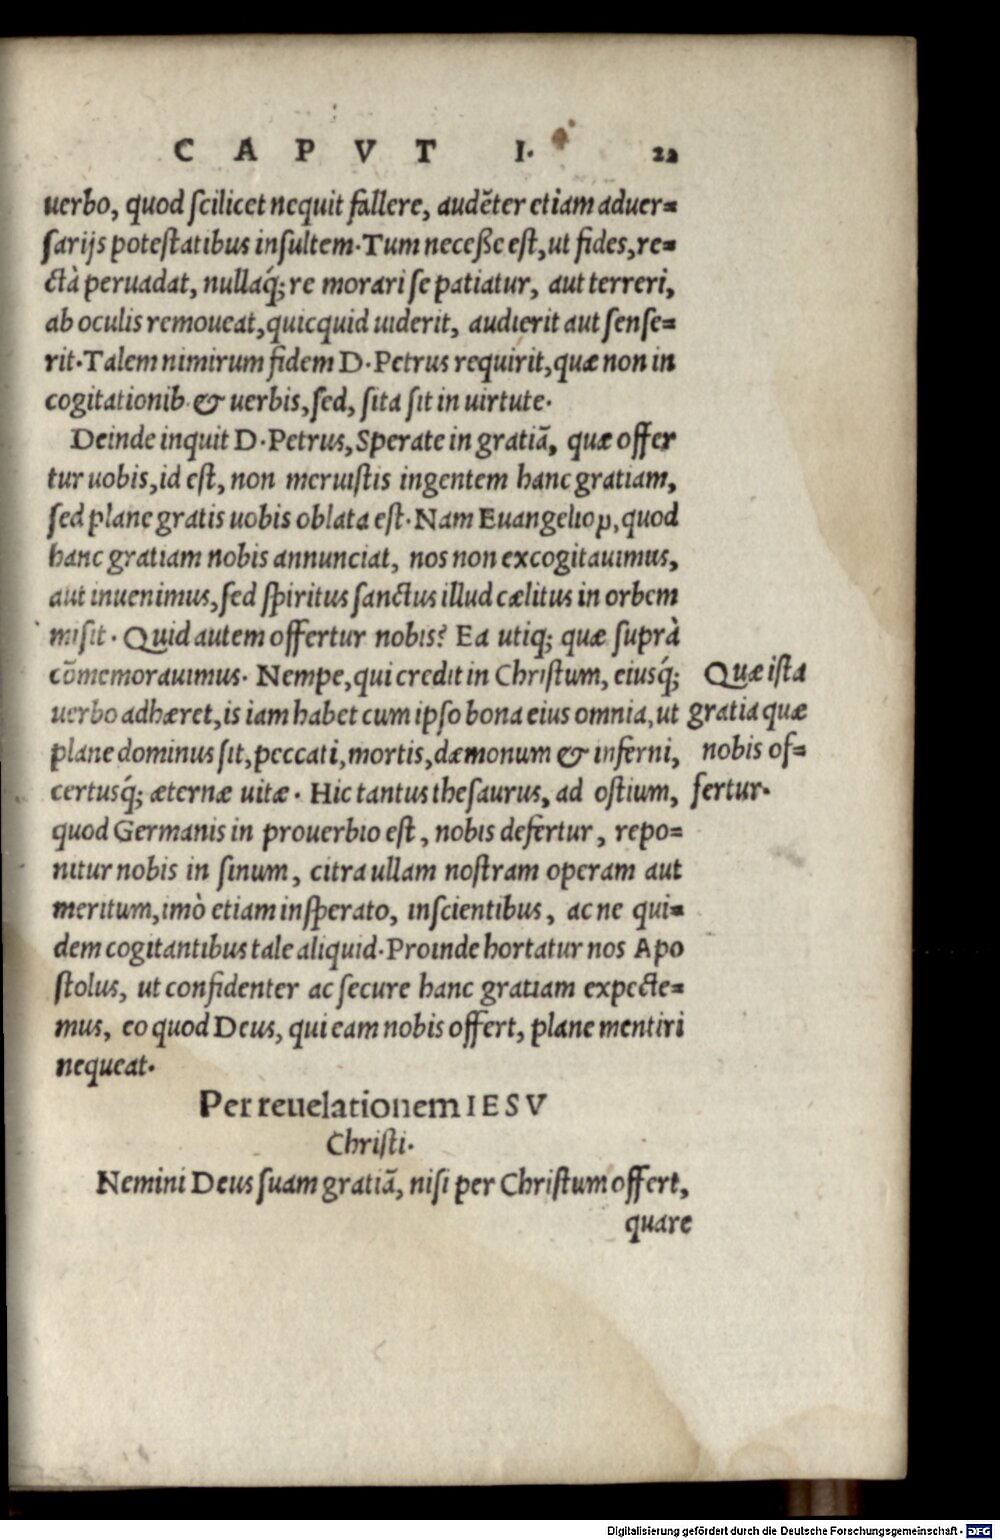 CAPVT I. 22
uerbo, quod scilicet nequit fallere, audẽter etiam aduer=
sarijs potestatibus insultem. Tum necesse est, ut fides, re=
ctà peruadat, nullaq́; re morari se patiatur, aut terreri,
ab oculis remoueat, quicquid uiderit, audierit aut sense=
rit. Talem nimirum fidem D. Petrus requirit, quæ non in
cogitationib. & uerbis, sed, sita sit in uirtute.
Deinde inquit D. Petrus, Sperate in gratiã, quæ offer
tur uobis, id est, non meruistis ingentem hanc gratiam,
sed plane gratis uobis oblata est. Nam Euangeliop, quod
hanc gratiam nobis annunciat, nos non excogitauimus,
aut inuenimus, sed spiritus sanctus illud cælitus in orbem
misit. Quid autem offertur nobis? Ea utiq; quæ suprà
cõmemorauimus. Nempe, qui credit in Christum, eiusq́;
uerbo adhæret, is iam habet cum ipso bona eius omnia, ut
plane dominus sit, peccati, mortis, dæmonum & inferni,
certusq́; æternæ uitæ. Hic tantus thesaurus, ad ostium,
quod Germanis in prouerbio est, nobis defertur, repo=
nitur nobis in sinum, citra ullam nostram operam aut
meritum, imò etiam insperato, inscientibus, ac ne qui=
dem cogitantibus tale aliquid. Proinde hortatur nos Apo
stolus, ut confidenter ac secure hanc gratiam expecte=
mus, eo quod Deus, qui eam nobis offert, plane mentiri
nequeat.
Quæ ista
gratia quæ
nobis of=
fertur.
Per reuelationem IESV
Christi.
Nemini Deus suam gratiã, nisi per Christum offert,
quare
Digitalisierung gefördert durch die Deutsche Forschungsgemeinschaft - DFG